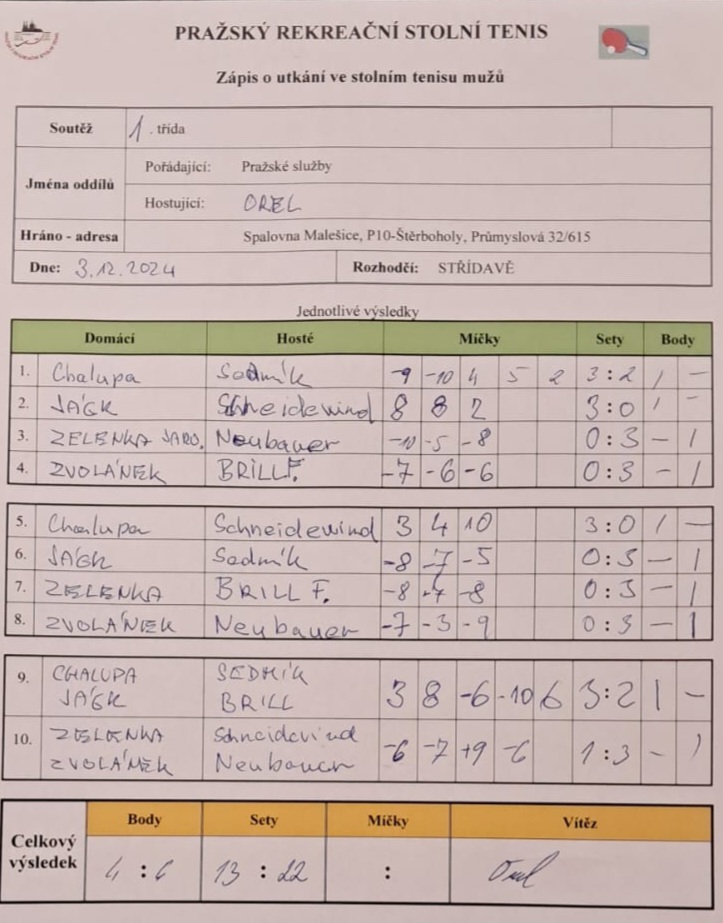 PRAŽSKÝ REKREAČNÍ STOLNÍ TENIS
Zápis o utkání ve stolním tenisu mužů
Soutěž 1. třída
Jména oddílů
Pořádající: Pražské služby
Hostující: OREL
Hráno - adresa Spalovna Malešice, P10-Štěrboholy, Průmyslová 32/615
Dne: 3.12.2024 Rozhodčí: STŘÍDAVĚ
Jednotlivé výsledky
Domácí Hosté Míčky Sety Body
1. Chalupa Sedmík -9 -10 4 5 2 3:2 1 -
2. JÁGR Schneidewind 8 8 2 3:0 1 -
3. ZELENKA JARO. Neubauer -10 -5 -8 0:3 - 1
4. ZVOLÁNEK BRILL F. -7 -6 -6 0:3 - 1
5. Chalupa Schneidewind 3 4 10 3:0 1 -
6. JÁGR Sedmík -8 -7 -5 0:3 - 1
7. ZELENKA BRILL F. -8 -7 -8 0:3 - 1
8. ZVOLÁNEK Neubauer -7 -3 -9 0:3 - 1
9. CHALUPA SEDMÍK
JÁGR BRILL 3 8 -6 -10 6 3:2 1 -
10. ZELENKA Schneidevind
ZVOLÁNEK Neubauer -6 -7 +9 -6 1:3 - 1
Celkový výsledek
Body Sety Míčky Vítěz
4 : 6 13 : 22 : Orel